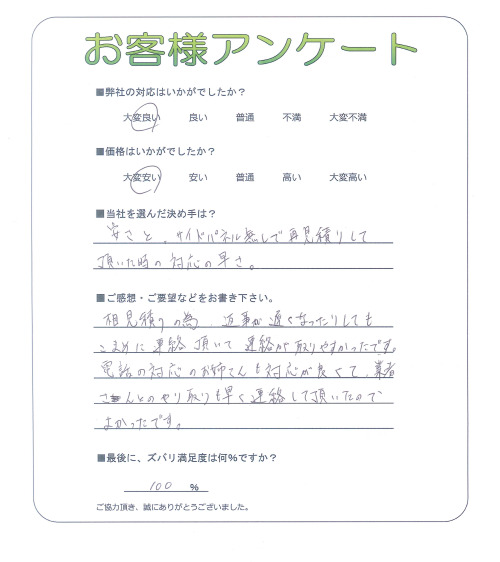 お客様アンケート
■弊社の対応はいかがでしたか？
大変良い 良い 普通 不満 大変不満
■価格はいかがでしたか？
大変安い 安い 普通 高い 大変高い
■当社を選んだ決め手は？
安さと、サイドパネル無しで再見積りして
頂いた時の対応の早さ。
■ご感想・ご要望などをお書き下さい。
相見積りの為、返事が遅くなったりしても
こまめに連絡頂いて連絡が取りやすかったです。
電話の対応のお姉さんも対応が良くて、業者
さんとのやり取りも早く連絡して頂いたので
よかったです。
■最後に、ズバリ満足度は何％ですか？
100 ％
ご協力頂き、誠にありがとうございました。